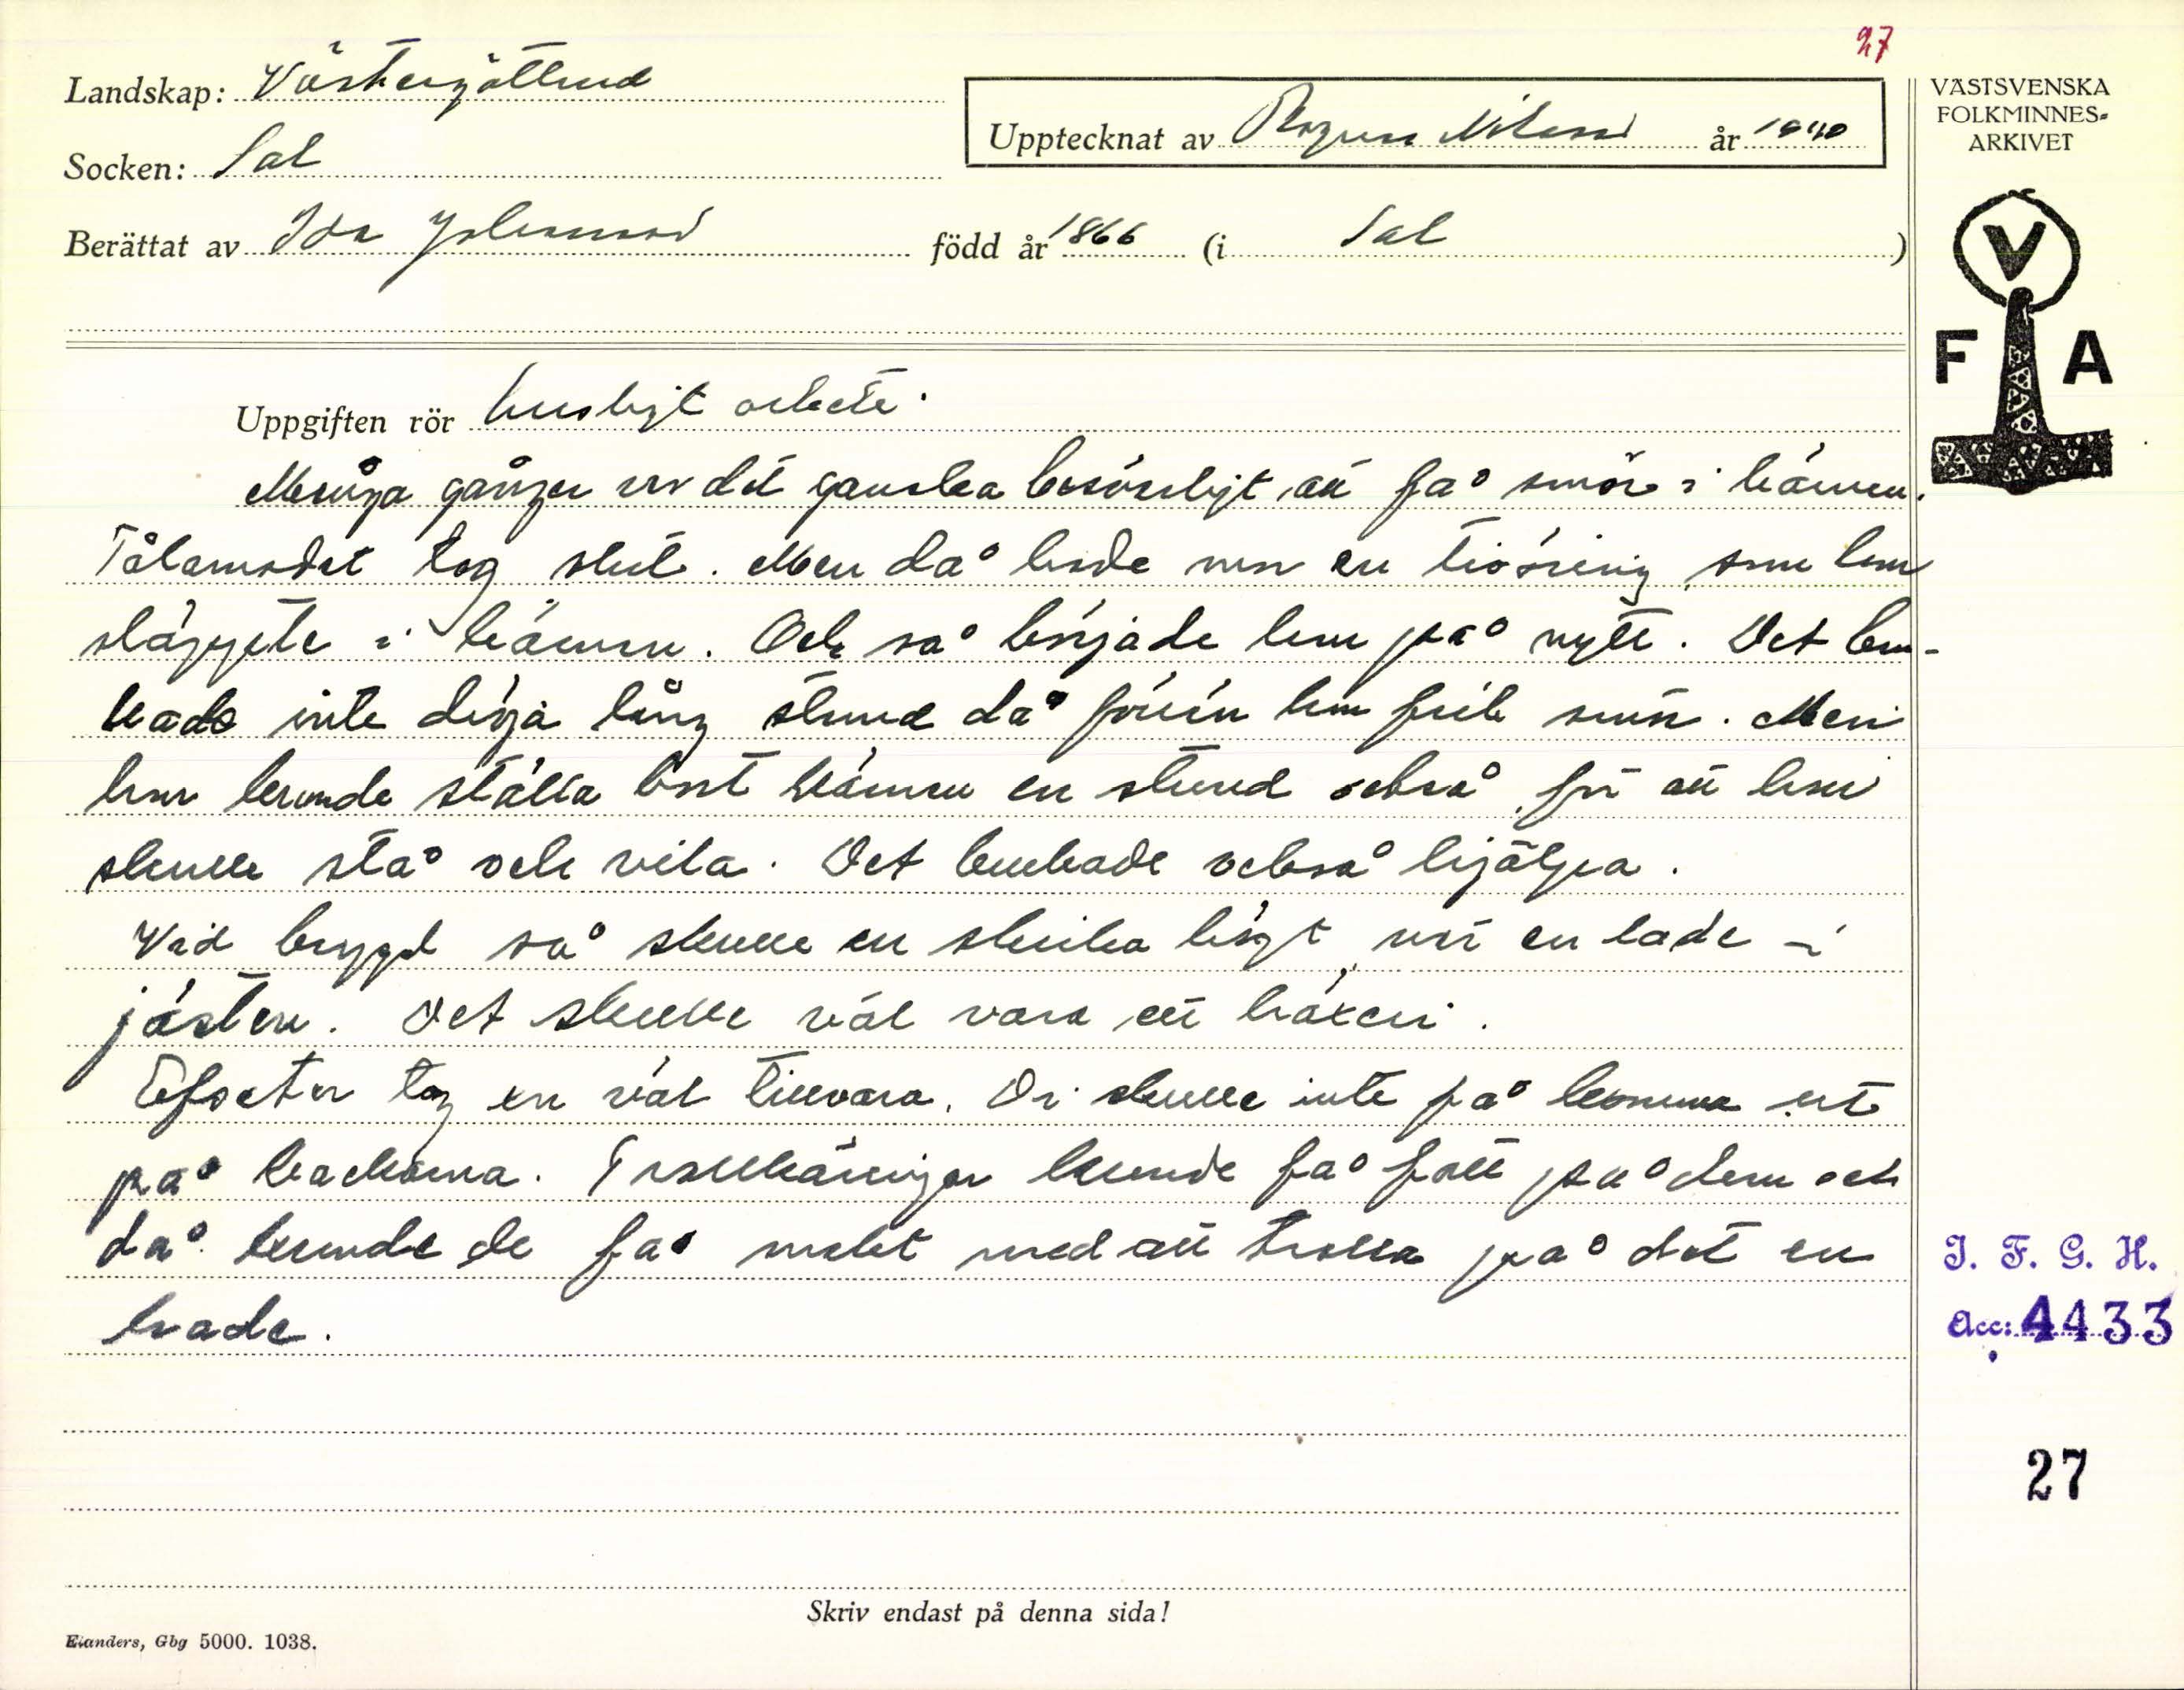 27
Landskap: Västergötland
Socken: Sal
Upptecknat av Ragnar Nilsson år 1940
Berättat av Ida Johansson född år 1866 (i Sal )
VÄSTSVENSKA
FOLKMINNES-
ARKIVET
V
F A
Uppgiften rör husligt arbete.
Många gånger var det ganska besvärligt att få smör i kärnan.
Tålamodet tog slut. Men då hade mor en tioöring som hon
släppte i kärnan. Och så började hon på nytt. Det bru-
kade inte dröja lång stund då förrän hon fick smör. Men
hon kunde ställa bort kärnan en stund också för att hon
skulle stå och vila. Det brukade också hjälpa.
Vid brygd så skulle en skrika högt när en lade i
jästen. Det skulle väl vara ett häxeri.
Efseter tog en väl tillvara. Di skulle inte få komma ut
på backarna. Trollkäringar kunde få fatt på dem och
då kunde de få makt med att trolla på det en
hade.
I. F. G. H.
Acc: 4433
27
Skriv endast på denna sida!
Elanders, Gbg 5000. 1038.